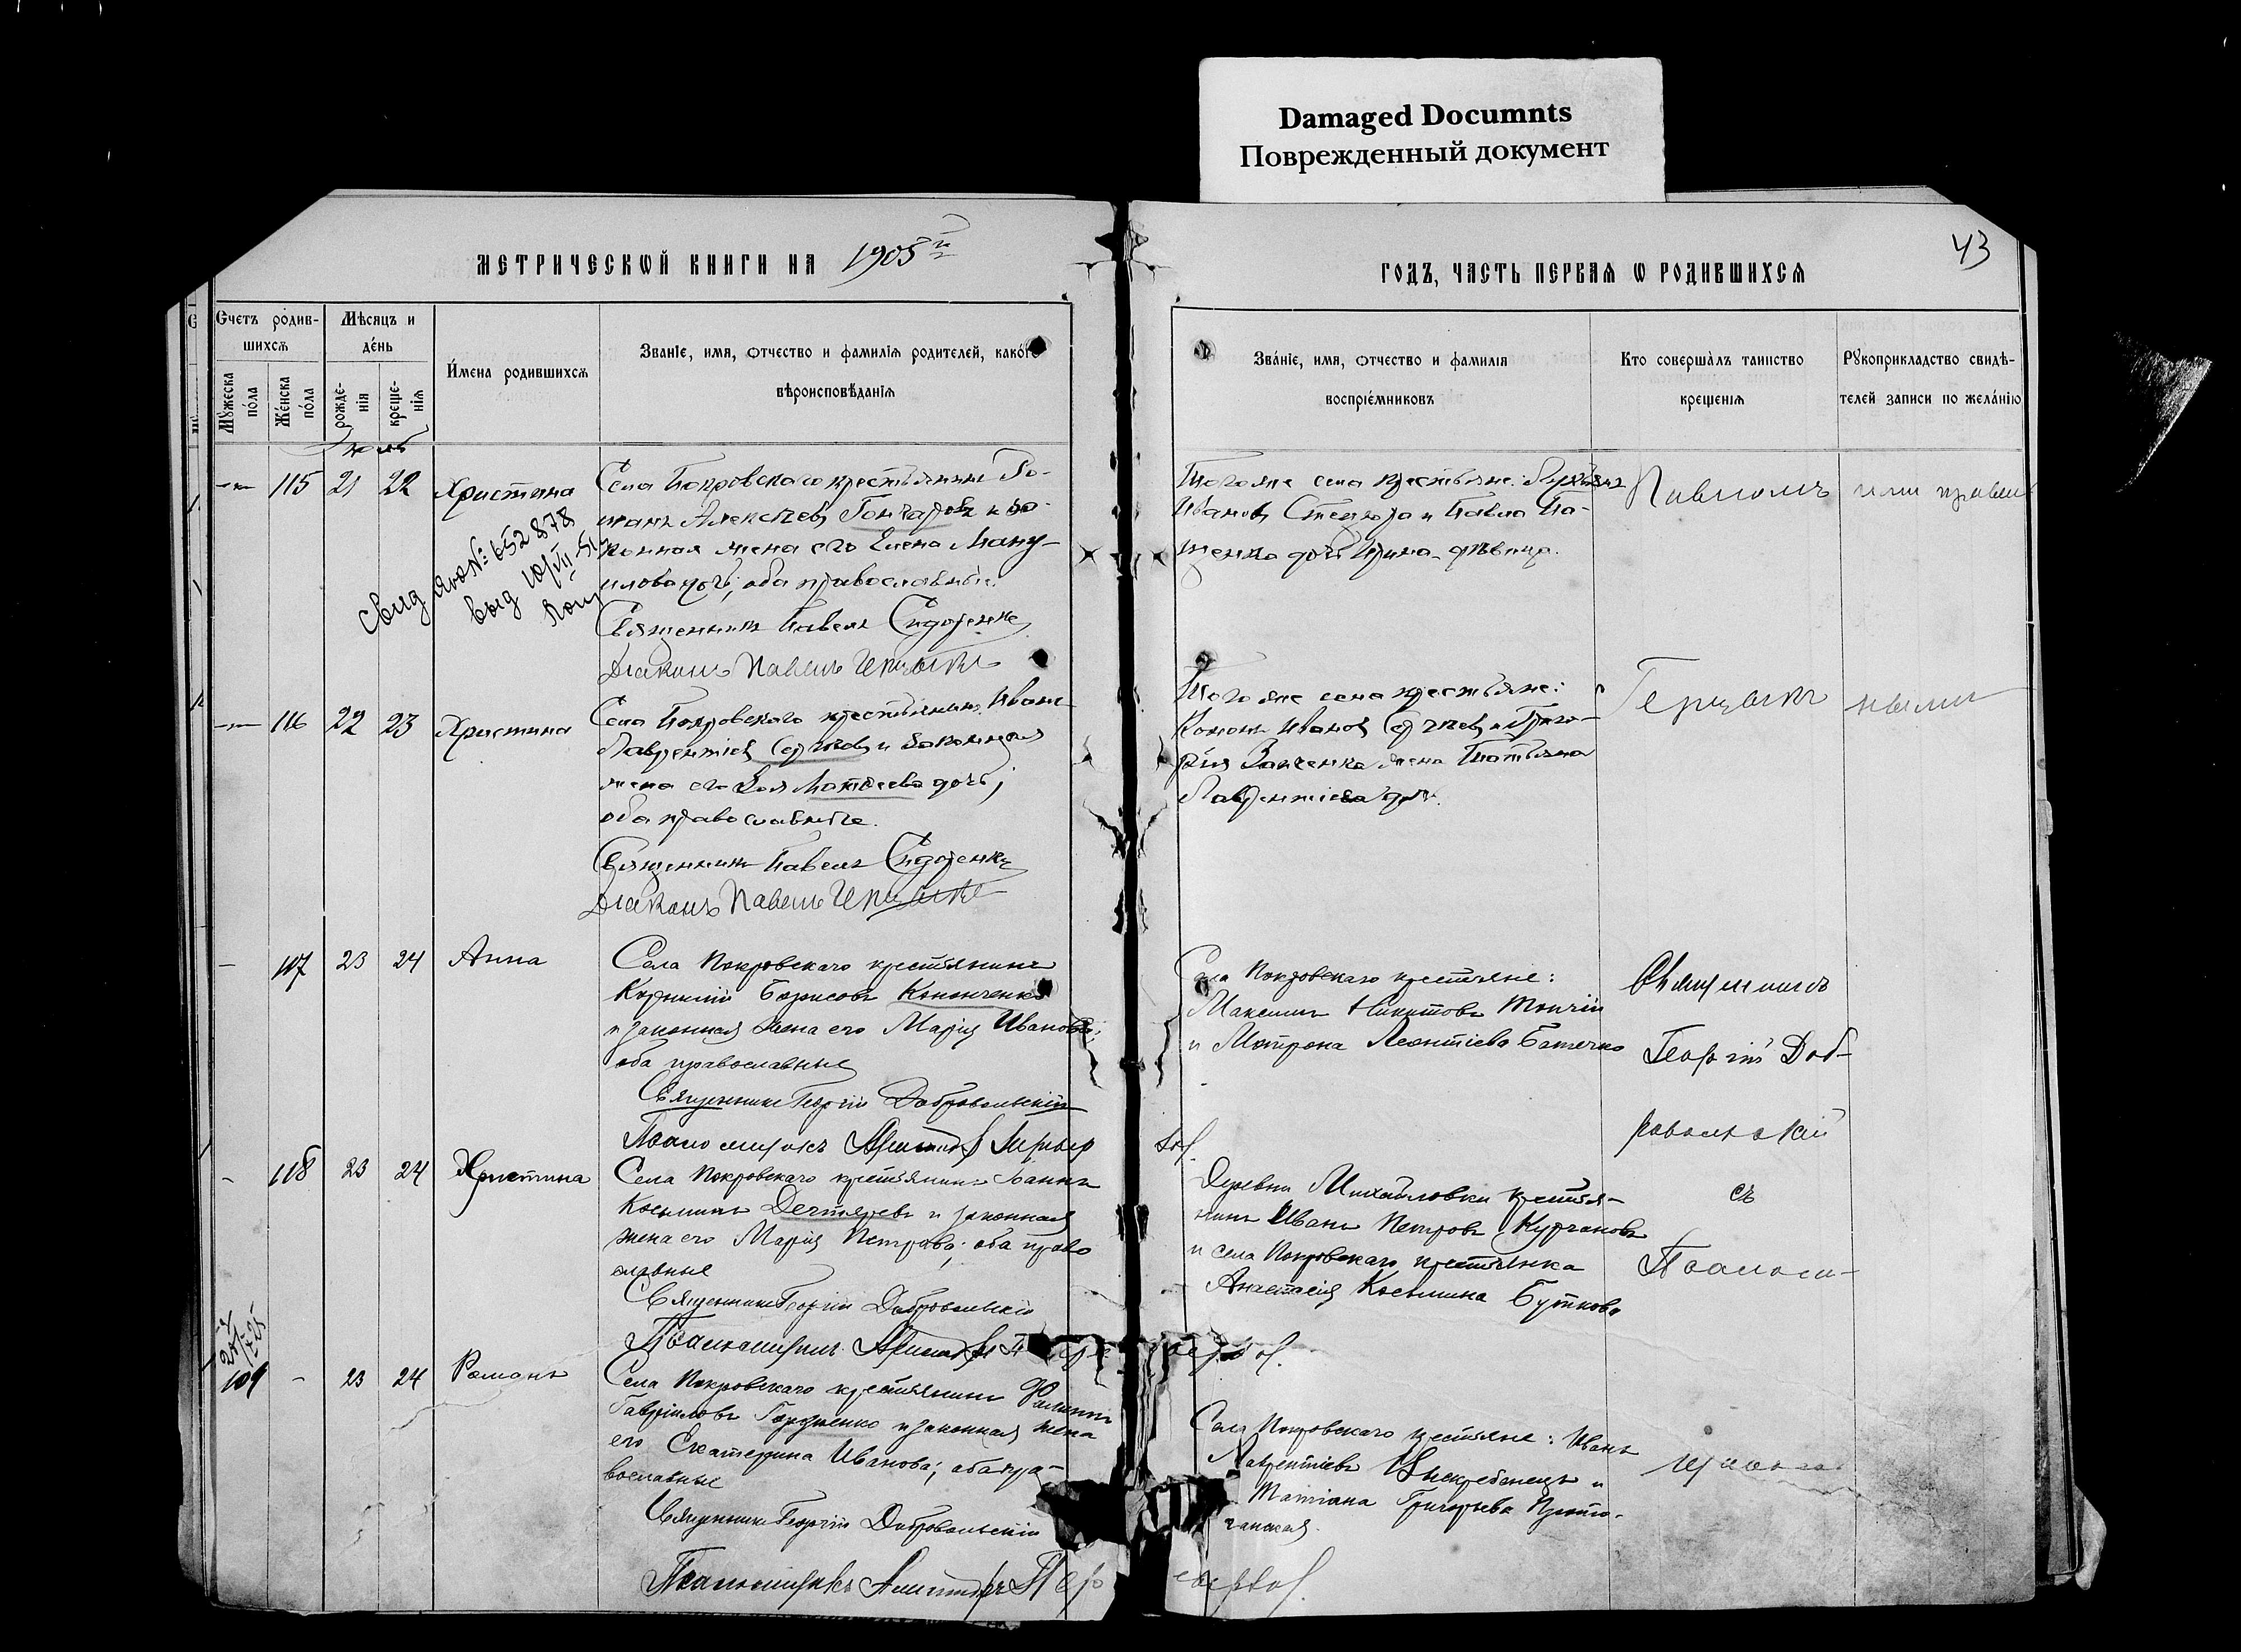 Damaged Documnts
Поврежденный документ
МЕТРИЧЕСКѠЙ КНИГИ НА 1905
ГОДЪ, ЧАСТЬ ПЕРВАѦ Ѡ РОДИВШИХСѦ
43
Счетъ родив-
шихсѧ
Мѣсяцъ и
де́нь
Мꙋжеска
по́ла
Же́нска
по́ла
рожде-
нія
креще-
нія
И́мена родившихсѧ
Званіе, имя, отчество и фамилія родителей, како́го
вѣроисповѣ́данія
Зва́ніе, имя, отчество и фамилія
воспріе́мниковъ
Кто соверша̀лъ таинство
крещенія
Рꙋкоприкладство свидѣ-
телей записи по жела́нію
115 21 22 Христина
Села Покровскаго крестьянинъ Ро-
манъ Алексѣевъ Гончаровъ и за-
конная жена его Елена Ману-
илова дочь; оба православные.
Священникъ Павелъ Сидоренко
Діаконъ Павелъ
Свид № 652878
выд 10/VII
Того же села крестьяне:
Ивановъ и Павла
дочь Ирина девица.
116 22 23 Христина
Села Покровскаго крестьянинъ Иванъ
Лаврентіевъ Сергѣевъ и законная
жена его Зоя Матѳеева дочь;
оба православные.
Священникъ Павелъ Сидоренко
Діаконъ Павелъ
Того же села крестьяне:
Кононъ Ивановъ Сергѣевъ и Григо-
рія жена Татьяна
Лаврентіева дочь.
117 23 24 Анна
Села Покровскаго крестьянинъ
Корнилій Борисовъ Кононченко
и законная жена его Марія Иванова;
оба православные
Священникъ Георгій Добровольскій
Псаломщикъ
Села Покровскаго крестьяне:
Максимъ Никитовъ
и Матрона Леонтіева
Священникъ
Георгій Доб-
ровольскій
съ
Псалом-
щикомъ
118 23 24 Христина
Села Покровскаго крестьянинъ Іоаннъ
Косьминъ Дегтяревъ и законная
жена его Марія Петрова; оба право
славные
Священникъ Георгій Добровольскій
Псаломщикъ
Деревни Михайловки крестья-
нинъ Иванъ Петровъ Курчановъ
и села Покровскаго крестьянка
Анастасія Косьмина Буткова
109 23 24 Романъ
Села Покровскаго крестьянинъ Филиппъ
Гавріиловъ Гордіенко и законная жена
его Екатерина Иванова; оба пра-
вославные
Священникъ Георгій Добровольскій
Псаломщикъ
Села Покровскаго крестьяне: Иванъ
Лаврентіевъ Выскребенецъ и
Татіана Григорьева